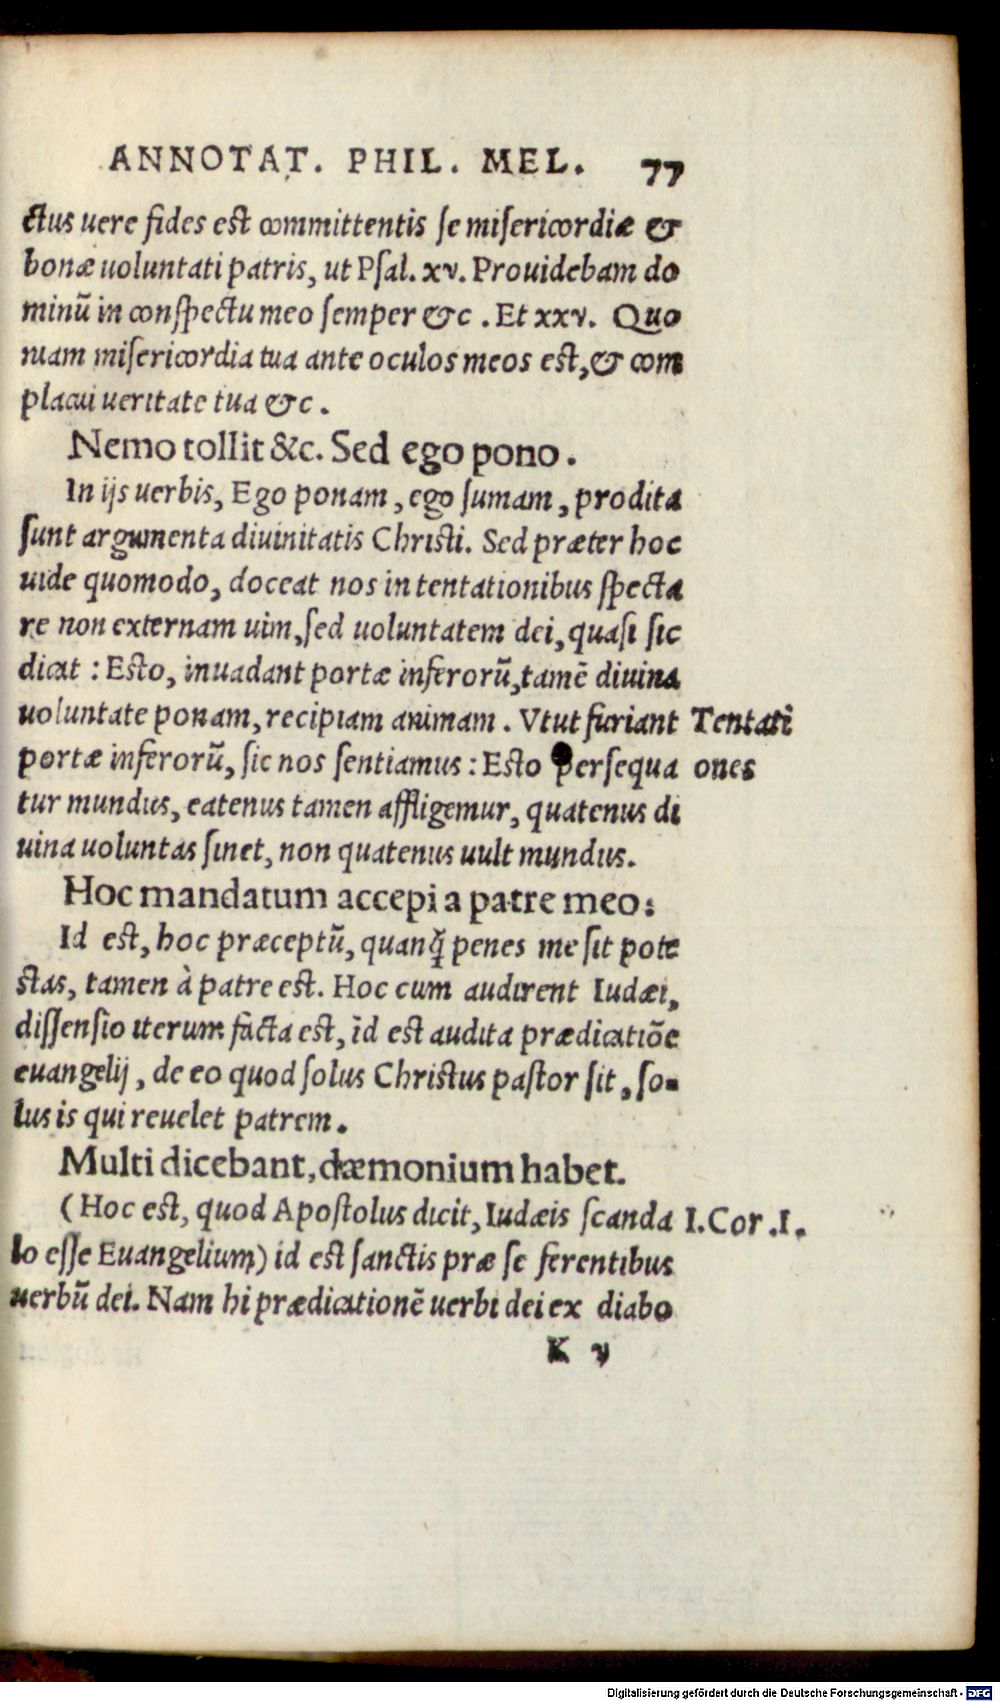 ANNOTAT. PHIL. MEL. 77
ctus uere fides est committentis se misericordiæ &
bonæ uoluntati patris, ut Psal. xv. Prouidebam do
minū in conspectu meo semper &c. Et xxv. Quo
niam misericordia tua ante oculos meos est, & com
placui ueritate tua &c.
Nemo tollit &c. Sed ego pono.
In ijs uerbis, Ego ponam, ego sumam, prodita
sunt argumenta diuinitatis Christi. Sed præter hoc
uide quomodo, doceat nos in tentationibus specta
re non externam uim, sed uoluntatem dei, quasi sic
dicat : Esto, inuadant portæ inferorū, tamē diuina
uoluntate ponam, recipiam animam. Vtut furiant Tentati
portæ inferorū, sic nos sentiamus : Esto persequa ones
tur mundus, eatenus tamen affligemur, quatenus di
uina uoluntas sinet, non quatenus uult mundus.
Hoc mandatum accepi a patre meo:
Id est, hoc præceptū, quanq̃ penes me sit pote
stas, tamen à patre est. Hoc cum audirent Iudæi,
dissensio iterum facta est, id est audita prædicatiōe
euangelij, de eo quod solus Christus pastor sit, so-
lus is qui reuelet patrem.
Multi dicebant, dæmonium habet.
(Hoc est, quod Apostolus dicit, Iudæis scanda I.Cor.I.
lo esse Euangelium) id est sanctis præ se ferentibus
uerbū dei. Nam hi prædicationē uerbi dei ex diabo
K v
Digitalisierung gefördert durch die Deutsche Forschungsgemeinschaft - DFG